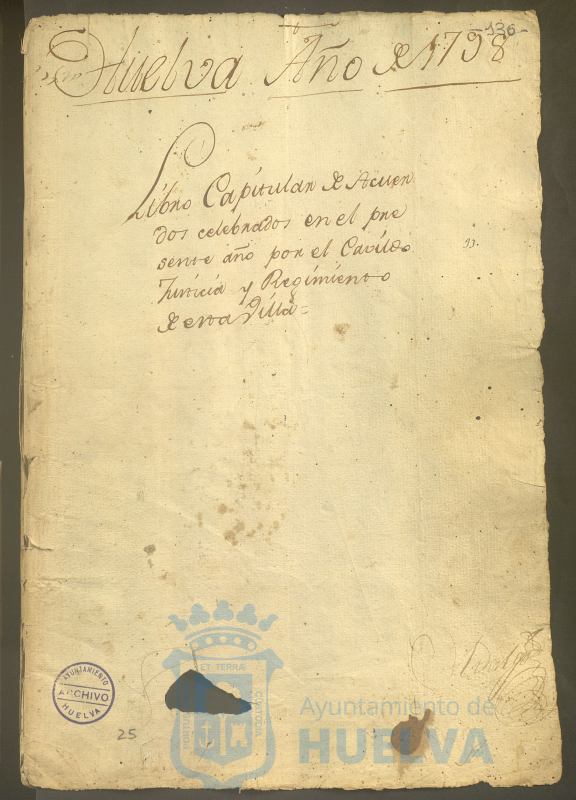 136
Huelva Año de 1798
Libro Capitular de Acuer
dos celebrados en el pre
sente año por el Cavildo
Justicia y Regimiento
de esta Villa =
AYUNTAMIENTO
ARCHIVO
HUELVA
25
ET TERRÆ
CUSTODIA
Ayuntamiento de
HUELVA